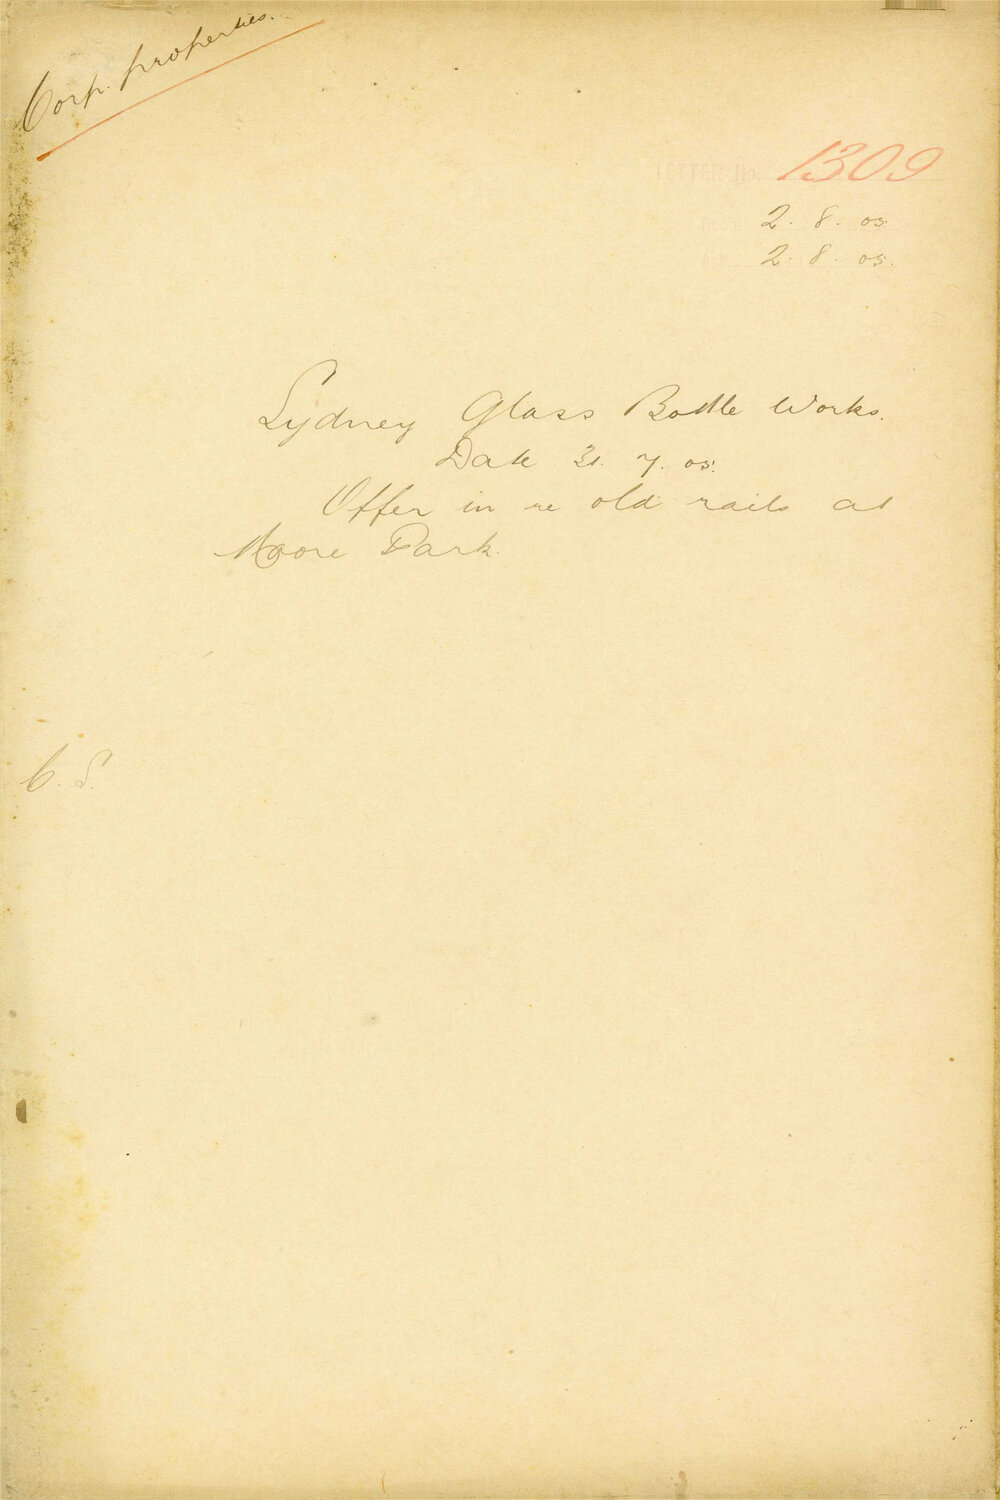 Corp. properties.
1309
2. 8. 05
2. 8. 05.
Sydney Glass Bottle Works.
Date 31. 7. 05.
Offer in re old rails at
Moore Park.
C. S.